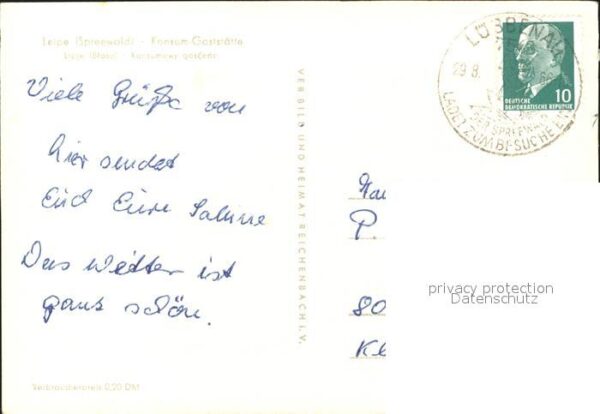 Leipe (Spreewald) - Konsum-Gaststätte
Lipje (Błota) - Konsumowy gosćenc
Viele Grüße von
hier sendet
Euch Eure Sabine
Das Wetter ist
ganz schön.
Verbraucherpreis 0,20 DM
VERBILD UND HEIMAT REICHENBACH I. V.
LÜBBENAU
29.8.
SPREEWALD
LADET ZUM BESUCHE EIN
10
DEUTSCHE
DEMOKRATISCHE REPUBLIK
P.
80
privacy protection
Datenschutz